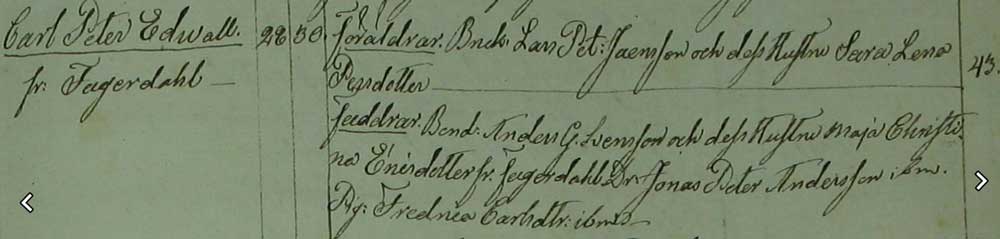 Carl Peter Edwall. 28 30 Föräldrar. Bnde. Lars Pet: Jaensson och dess Hustru Sara Lena 43.
fr. Fagerdahl — Persdotter
faddrar. Bond. Anders G. Svensson och dess Hustru Maja Christi-
na Ericsdotter fr. Fagerdahl Dr. Jonas Peter Andersson ibm.
Pig: Carlsdtr: ibm —